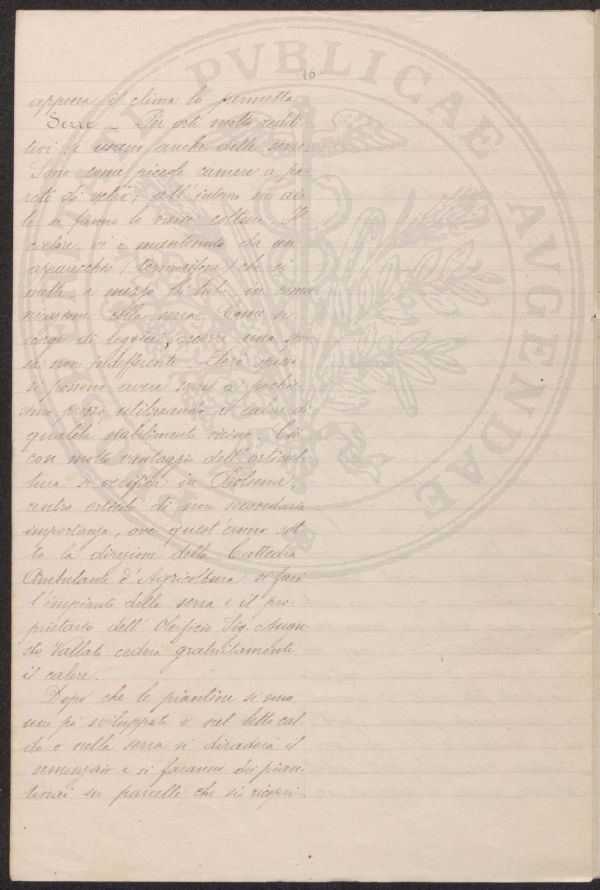 10
appena il clima lo permetta.
Serre – Per orti molto reddi-
tivi si usano anche delle serre.
Sono come piccole camere a pa-
reti di vetro; all'interno su aio-
le si fanno le varie colture. Il
calore vi è mantenuto da un
apparecchio (termosifone) che si
mette, a mezzo di tubi, in comu-
nicazione colla serra. Come si
scorge di leggieri, occorre una spe-
sa non indifferente. Però spesso
si possono avere serre a pochis-
simo prezzo utilizzando il calore di
qualche stabilimento vicino. Ciò
con molto vantaggio dell'orticul-
tura si verifica in Bolsena,
centro orticolo di non secondaria
importanza, ove quest'anno sot-
to la direzione della Cattedra
Ambulante d'Agricoltura si farà
l'impianto della serra e il pro-
prietario dell'Oleificio Sig.
do Vallati cederà gratuitamente
il calore.
Dopo che le piantine si sono
un pò sviluppate o nel letto cal-
do o nella serra si diraderà il
semenzaio e si faranno dei pian-
tinai su parcelle che si ricopri-
PVBLICAE AVGENDAE